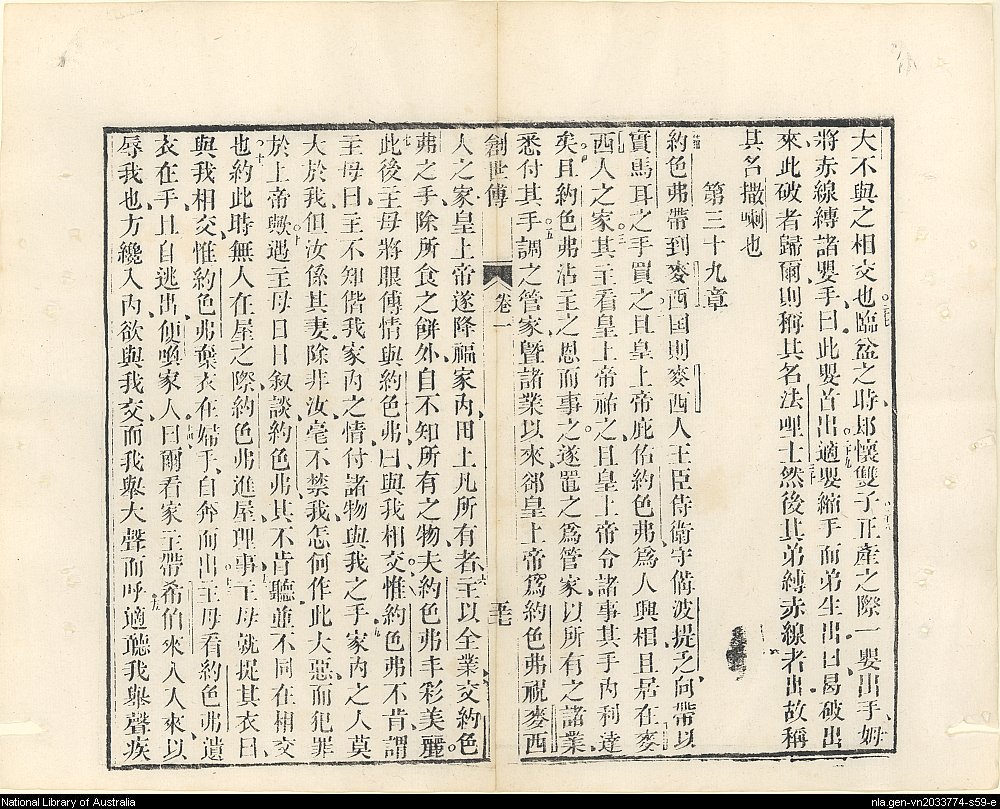 大不與之相交也臨盆之時郎懷雙子正產之際一嬰出手姆
將赤線縛諸嬰手曰此嬰首出適嬰縮手而弟生出曰曷破出
來此破者歸爾則稱其名法哩士然後其弟縛赤線者出故稱
其名撒喇也
第三十九章
約色弗帶到麥西國則麥西人王臣侍衛守備波提乏向帶以
實馬耳之手買之且皇上帝庇佑約色弗為人興相且居在麥
西人之家其主看皇上帝祐之且皇上帝令諸事其手內利達
矣且約色弗沾主之恩而事之遂置之為管家以所有之諸業
悉付其手調之管家曁諸業以來郤皇上帝為約色弗祝麥西
創世傳 卷一 五七
人之家皇上帝遂降福家內田土凡所有者主以全業交約色
弗之手除所食之餅外自不知所有之物夫約色弗丰彩美麗
此後主母將眼傳情與約色弗曰與我相交惟約色弗不肯謂
主母曰主不知偕我家內之情付諸物與我之手家內之人莫
大於我但汝係其妻除非汝毫不禁我怎何作此大惡而犯罪
於上帝歟遇主母日日叙談約色弗其不肯聽並不同在相交
也約此時無人在屋之際約色弗進屋理事主母就捉其衣曰
與我相交惟約色弗棄衣在婦手自奔而出主母看約色弗遺
衣在手且自逃出便喚家人曰爾看家主帶希伯來人入來以
辱我也方纔入內欲與我交而我舉大聲而呼適聽我舉聲疾
National Library of Australia
nla.gen-vn2033774-s59-e